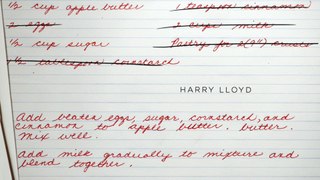 1/2 cup apple butter
1 teaspoon cinnamon
2 eggs
2 cups milk
1/2 cup sugar
Pastry for 2 (9") crusts
1 1/2 tablespoon cornstarch
HARRY LLOYD
Add beaten eggs, sugar, cornstarch, and
cinnamon to apple butter. butter.
Mix well.
Add milk gradually to mixture and
blend together.